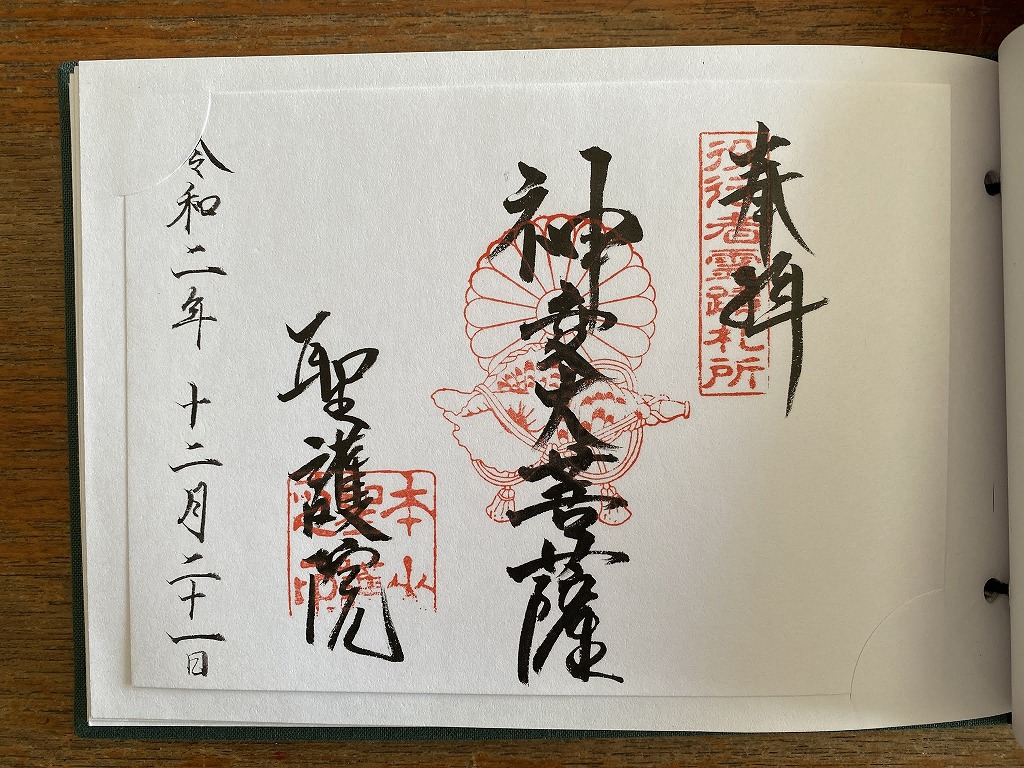 奉拝
役行者霊蹟札所
神変大菩薩
聖護院
本山
令和二年 十二月二十一日